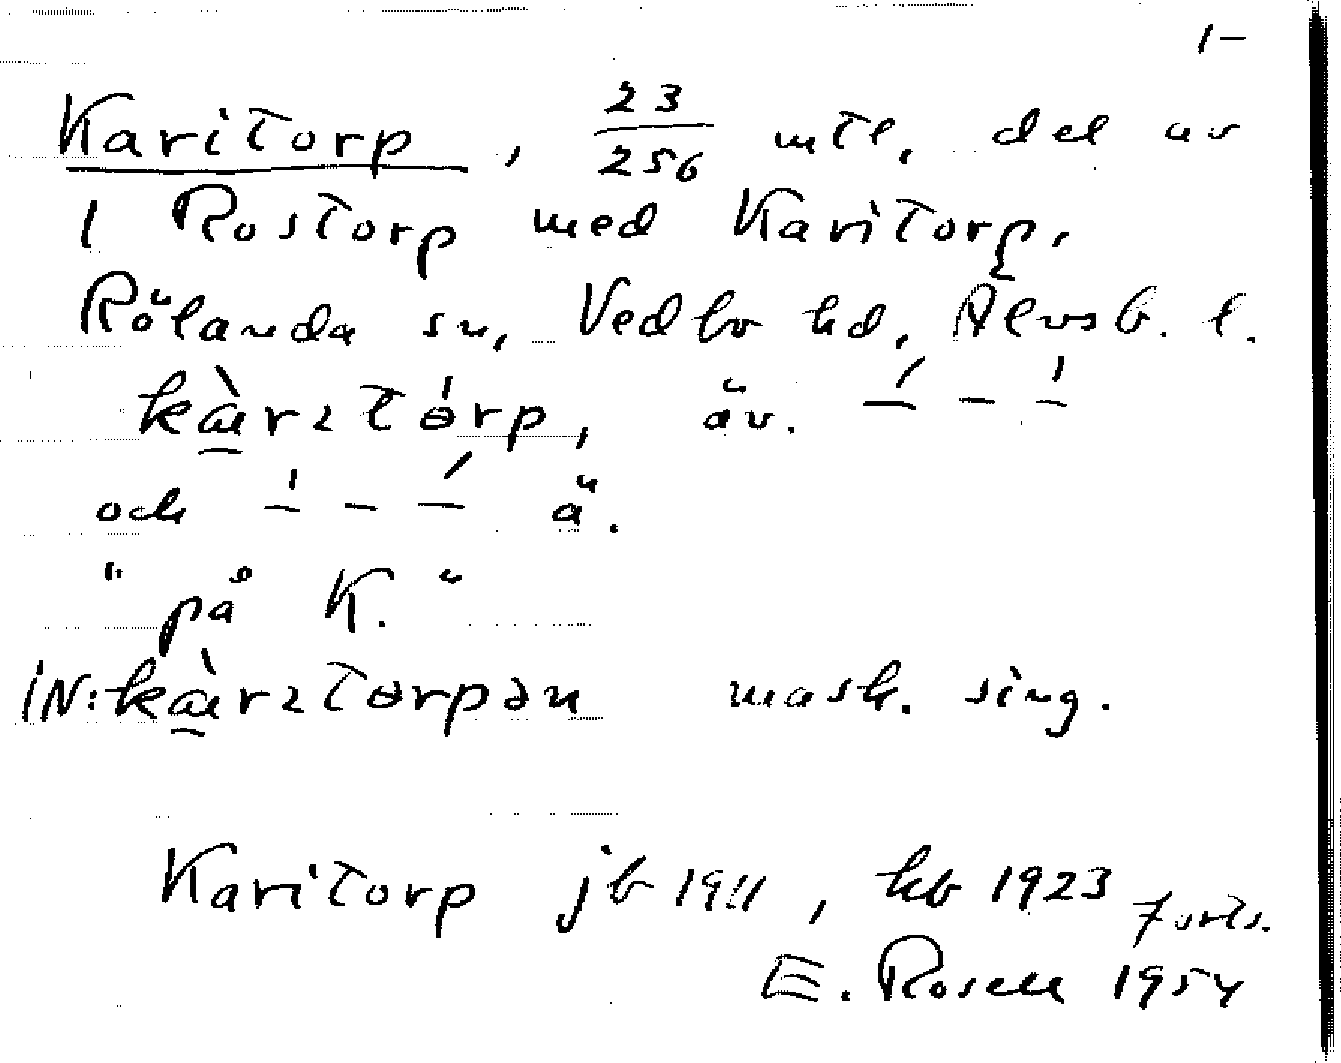 1–
Karitorp, 23/256 mtl, del av
1 Rostorp med Karitorp,
Rölanda sn, Vedbo hd, Älvsb. l.
kàrɩtɵ́rp, äv. –́ – –̍
och –̍ – –́ ä.
"på K."
IN: kàrɩtɵrpən mask. sing.
Karitorp jb 1911, kb 1923 forts.
E. Rosell 1954